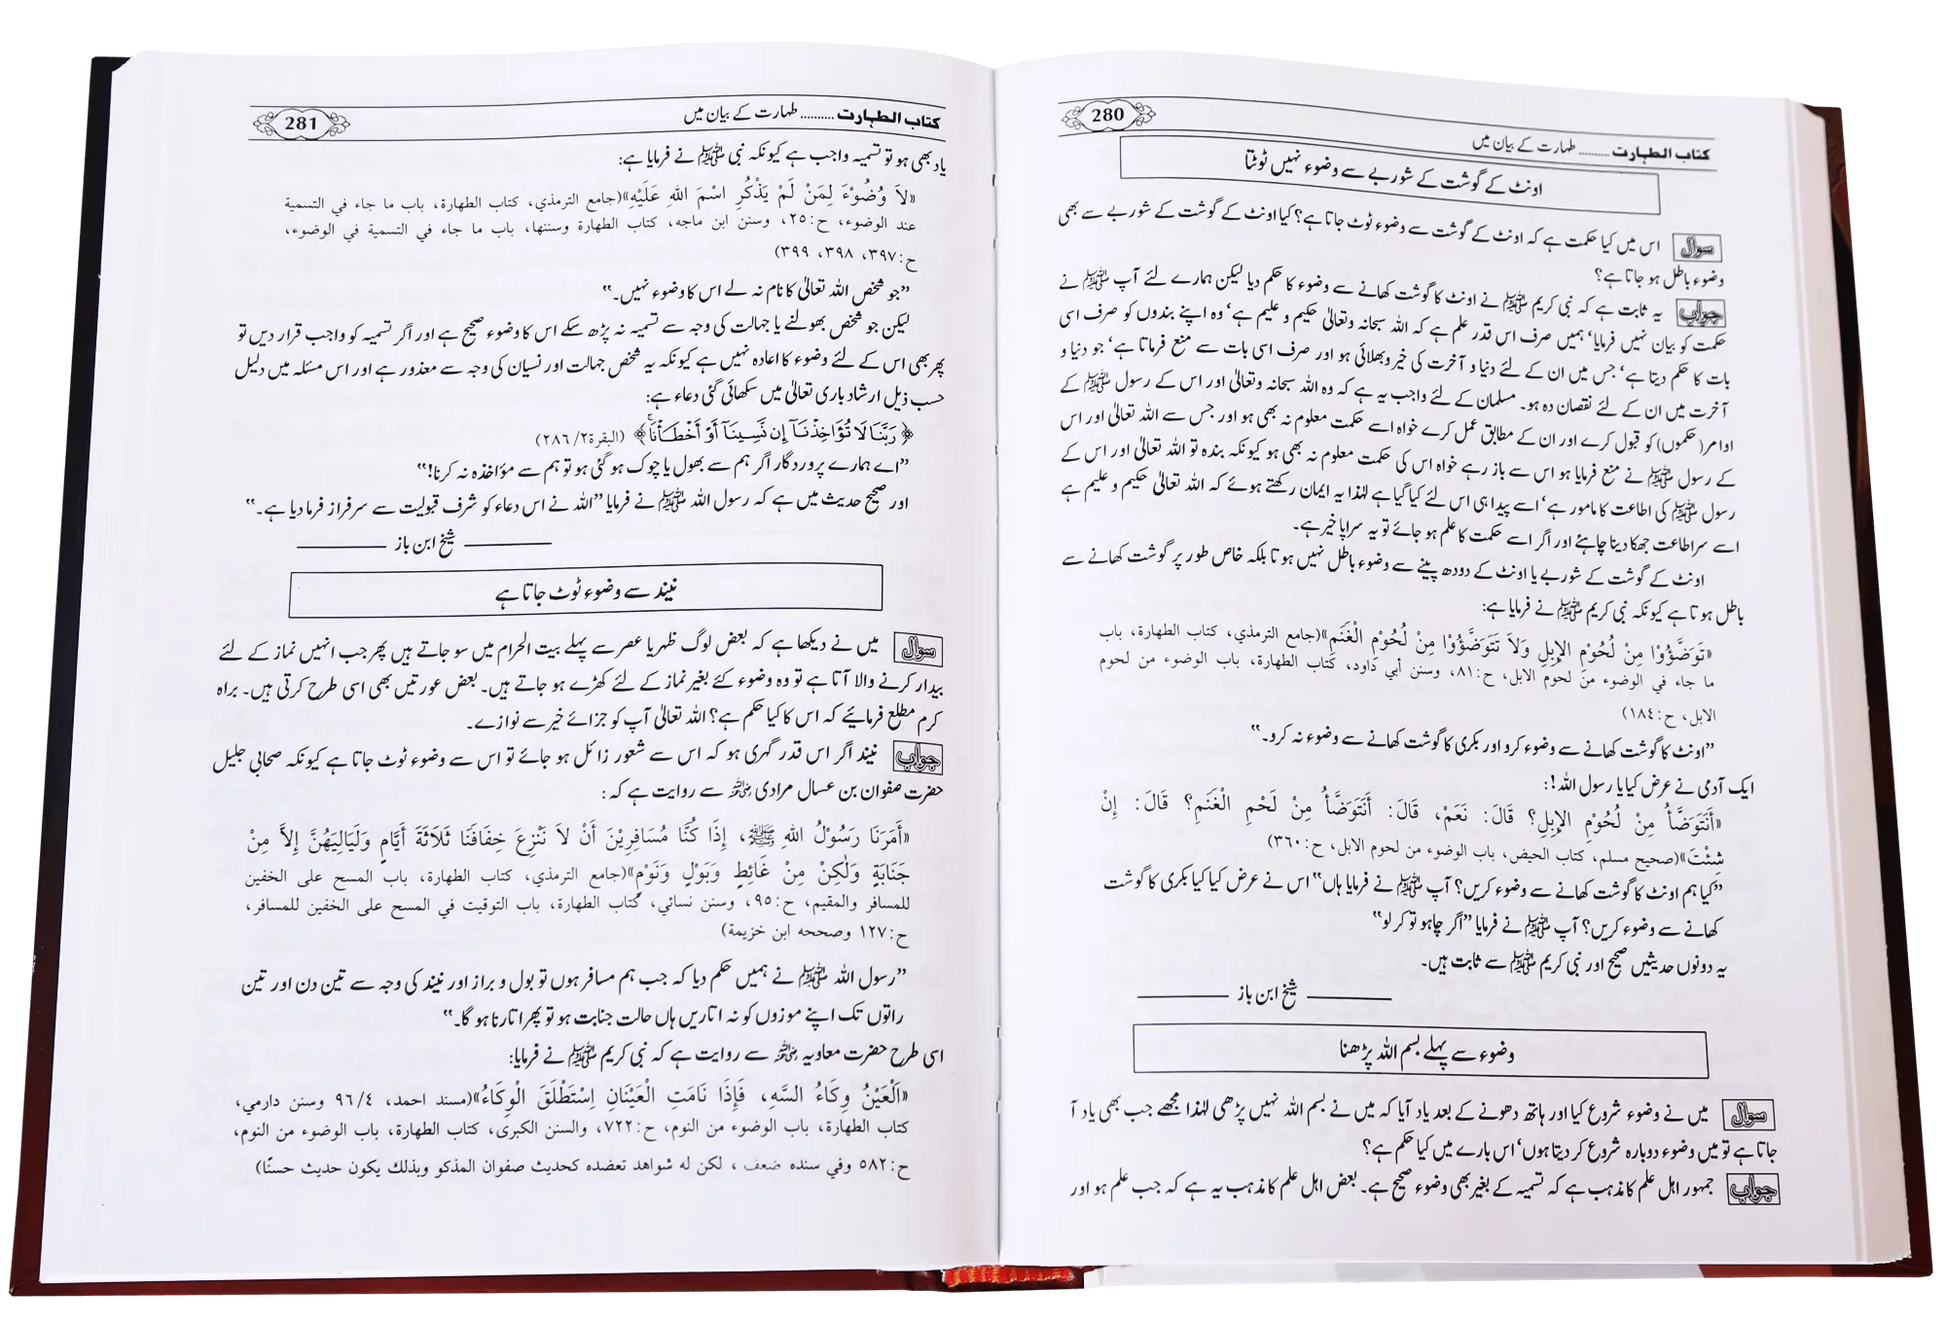 280
کتاب الطہارت .......... طہارت کے بیان میں
اونٹ کے گوشت کے شوربے سے وضوء نہیں ٹوٹتا
سوال اس میں کیا حکمت ہے کہ اونٹ کے گوشت سے وضوء ٹوٹ جاتا ہے؟ کیا اونٹ کے گوشت کے شوربے سے بھی
وضوء باطل ہو جاتا ہے؟
جواب یہ ثابت ہے کہ نبی کریم ﷺ نے اونٹ کا گوشت کھانے سے وضوء کا حکم دیا لیکن ہمارے لئے آپ ﷺ نے
حکمت کو بیان نہیں فرمایا‘ ہمیں صرف اس قدر علم ہے کہ اللہ سبحانہ وتعالیٰ حکیم و علیم ہے‘ وہ اپنے بندوں کو صرف اسی
بات کا حکم دیتا ہے‘ جس میں ان کے لئے دنیا و آخرت کی خیروبھلائی ہو اور صرف اسی بات سے منع فرماتا ہے‘ جو دنیا و
آخرت میں ان کے لئے نقصان دہ ہو۔ مسلمان کے لئے واجب یہ ہے کہ وہ اللہ سبحانہ وتعالیٰ اور اس کے رسول ﷺ کے
اوامر (حکموں) کو قبول کرے اور ان کے مطابق عمل کرے خواہ اسے حکمت معلوم نہ بھی ہو اور جس سے اللہ تعالیٰ اور اس
کے رسول ﷺ نے منع فرمایا ہو اس سے باز رہے خواہ اس کی حکمت معلوم نہ بھی ہو کیونکہ بندہ تو اللہ تعالیٰ اور اس کے
رسول ﷺ کی اطاعت کا مامور ہے‘ اسے پیدا ہی اس لئے کیا گیا ہے لہٰذا یہ ایمان رکھتے ہوئے کہ اللہ تعالیٰ حکیم و علیم ہے
اسے سر اطاعت جھکا دینا چاہئے اور اگر اسے حکمت کا علم ہو جائے تو یہ سراپا خیر ہے۔
اونٹ کے گوشت کے شوربے یا اونٹ کے دودھ پینے سے وضوء باطل نہیں ہوتا بلکہ خاص طور پر گوشت کھانے سے
باطل ہوتا ہے کیونکہ نبی کریم ﷺ نے فرمایا ہے:
«تَوَضَّؤُوْا مِنْ لُحُوْمِ الإِبِلِ وَلاَ تَتَوَضَّؤُوْا مِنْ لُحُوْمِ الْغَنَمِ»(جامع الترمذي، كتاب الطهارة، باب
ما جاء في الوضوء من لحوم الابل، ح:٨١، وسنن أبي داود، كتاب الطهارة، باب الوضوء من لحوم
الابل، ح:١٨٤)
”اونٹ کا گوشت کھانے سے وضوء کرو اور بکری کا گوشت کھانے سے وضوء نہ کرو۔“
ایک آدمی نے عرض کیا یا رسول اللہ!:
«أَنَتَوَضَّأُ مِنْ لُحُوْمِ الإِبِلِ؟ قَالَ: نَعَمْ، قَالَ: أَنَتَوَضَّأُ مِنْ لَحْمِ الْغَنَمِ؟ قَالَ: إِنْ
شِئْتَ»(صحيح مسلم، كتاب الحيض، باب الوضوء من لحوم الابل، ح:٣٦٠)
”کیا ہم اونٹ کا گوشت کھانے سے وضوء کریں؟ آپ ﷺ نے فرمایا ہاں“ اس نے عرض کیا کیا بکری کا گوشت
کھانے سے وضوء کریں؟ آپ ﷺ نے فرمایا ”اگر چاہو تو کر لو“
یہ دونوں حدیثیں صحیح اور نبی کریم ﷺ سے ثابت ہیں۔
شیخ ابن باز
وضوء سے پہلے بسم اللہ پڑھنا
سوال میں نے وضوء شروع کیا اور ہاتھ دھونے کے بعد یاد آیا کہ میں نے بسم اللہ نہیں پڑھی لہٰذا مجھے جب بھی یاد آ
جاتا ہے تو میں وضوء دوبارہ شروع کر دیتا ہوں‘ اس بارے میں کیا حکم ہے؟
جواب جمہور اہل علم کا مذہب ہے کہ تسمیہ کے بغیر بھی وضوء صحیح ہے۔ بعض اہل علم کا مذہب یہ ہے کہ جب علم ہو اور
281
کتاب الطہارت .......... طہارت کے بیان میں
یاد بھی ہو تو تسمیہ واجب ہے کیونکہ نبی ﷺ نے فرمایا ہے:
«لاَ وُضُوْءَ لِمَنْ لَمْ يَذْكُرِ اسْمَ اللهِ عَلَيْهِ»(جامع الترمذي، كتاب الطهارة، باب ما جاء في التسمية
عند الوضوء، ح:٢٥، وسنن ابن ماجه، كتاب الطهارة وسننها، باب ما جاء في التسمية في الوضوء،
ح:٣٩٧، ٣٩٨، ٣٩٩)
”جو شخص اللہ تعالیٰ کا نام نہ لے اس کا وضوء نہیں۔“
لیکن جو شخص بھولنے یا جہالت کی وجہ سے تسمیہ نہ پڑھ سکے اس کا وضوء صحیح ہے اور اگر تسمیہ کو واجب قرار دیں تو
پھر بھی اس کے لئے وضوء کا اعادہ نہیں ہے کیونکہ یہ شخص جہالت اور نسیان کی وجہ سے معذور ہے اور اس مسئلہ میں دلیل
حسب ذیل ارشاد باری تعالیٰ میں سکھائی گئی دعاء ہے:
﴿رَبَّنَا لَا تُؤَاخِذْنَآ إِن نَّسِينَآ أَوْ أَخْطَأْنَاۚ﴾ (البقرة٢/٢٨٦)
”اے ہمارے پروردگار اگر ہم سے بھول یا چوک ہو گئی ہو تو ہم سے مؤاخذہ نہ کرنا!“
اور صحیح حدیث میں ہے کہ رسول اللہ ﷺ نے فرمایا ”اللہ نے اس دعاء کو شرف قبولیت سے سرفراز فرما دیا ہے۔“
شیخ ابن باز
نیند سے وضوء ٹوٹ جاتا ہے
سوال میں نے دیکھا ہے کہ بعض لوگ ظہر یا عصر سے پہلے بیت الحرام میں سو جاتے ہیں پھر جب انہیں نماز کے لئے
بیدار کرنے والا آتا ہے تو وہ وضوء کئے بغیر نماز کے لئے کھڑے ہو جاتے ہیں۔ بعض عورتیں بھی اسی طرح کرتی ہیں۔ براہ
کرم مطلع فرمائیے کہ اس کا کیا حکم ہے؟ اللہ تعالیٰ آپ کو جزائے خیر سے نوازے۔
جواب نیند اگر اس قدر گہری ہو کہ اس سے شعور زائل ہو جائے تو اس سے وضوء ٹوٹ جاتا ہے کیونکہ صحابی جلیل
حضرت صفوان بن عسال مرادی رضی اللہ عنہ سے روایت ہے کہ:
«أَمَرَنَا رَسُوْلُ اللهِ ﷺ، إِذَا كُنَّا مُسَافِرِيْنَ أَنْ لاَ نَنْزِعَ خِفَافَنَا ثَلاَثَةَ أَيَّامٍ وَلَيَالِيَهُنَّ إِلاَّ مِنْ
جَنَابَةٍ وَلٰكِنْ مِنْ غَائِطٍ وَبَوْلٍ وَنَوْمٍ»(جامع الترمذي، كتاب الطهارة، باب المسح على الخفين
للمسافر والمقيم، ح:٩٥، وسنن نسائي، كتاب الطهارة، باب التوقيت في المسح على الخفين للمسافر،
ح:١٢٧ وصححه ابن خزيمة)
”رسول اللہ ﷺ نے ہمیں حکم دیا کہ جب ہم مسافر ہوں تو بول و براز اور نیند کی وجہ سے تین دن اور تین
راتوں تک اپنے موزوں کو نہ اتاریں ہاں حالت جنابت ہو تو پھر اتارنا ہو گا۔“
اسی طرح حضرت معاویہ رضی اللہ عنہ سے روایت ہے کہ نبی کریم ﷺ نے فرمایا:
«اَلْعَيْنُ وِكَاءُ السَّهِ، فَإِذَا نَامَتِ الْعَيْنَانِ اِسْتَطْلَقَ الْوِكَاءُ»(مسند احمد، ٩٦/٤ وسنن دارمي،
كتاب الطهارة، باب الوضوء من النوم، ح:٧٢٢، والسنن الكبرى، كتاب الطهارة، باب الوضوء من النوم،
ح:٥٨٢ وفي سنده ضعف، لكن له شواهد تعضده كحديث صفوان المذكو وبذلك يكون حديث حسنًا)